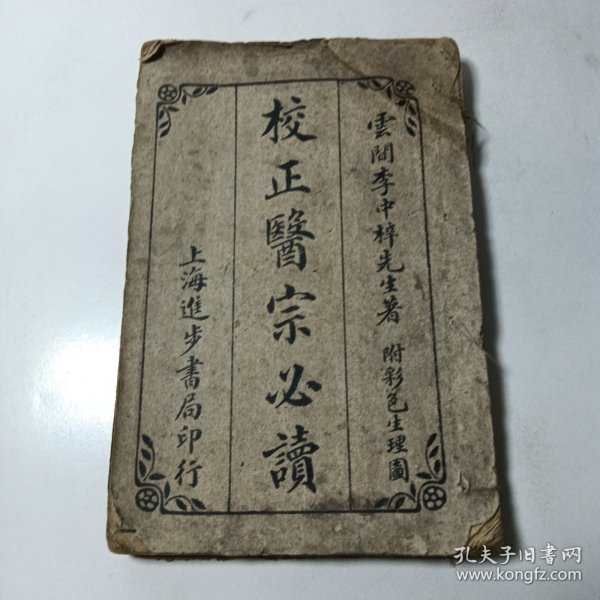 雲間李中梓先生著 附彩色生理圖
校正醫宗必讀
上海進步書局印行
孔夫子旧书网
www.kongfz.com